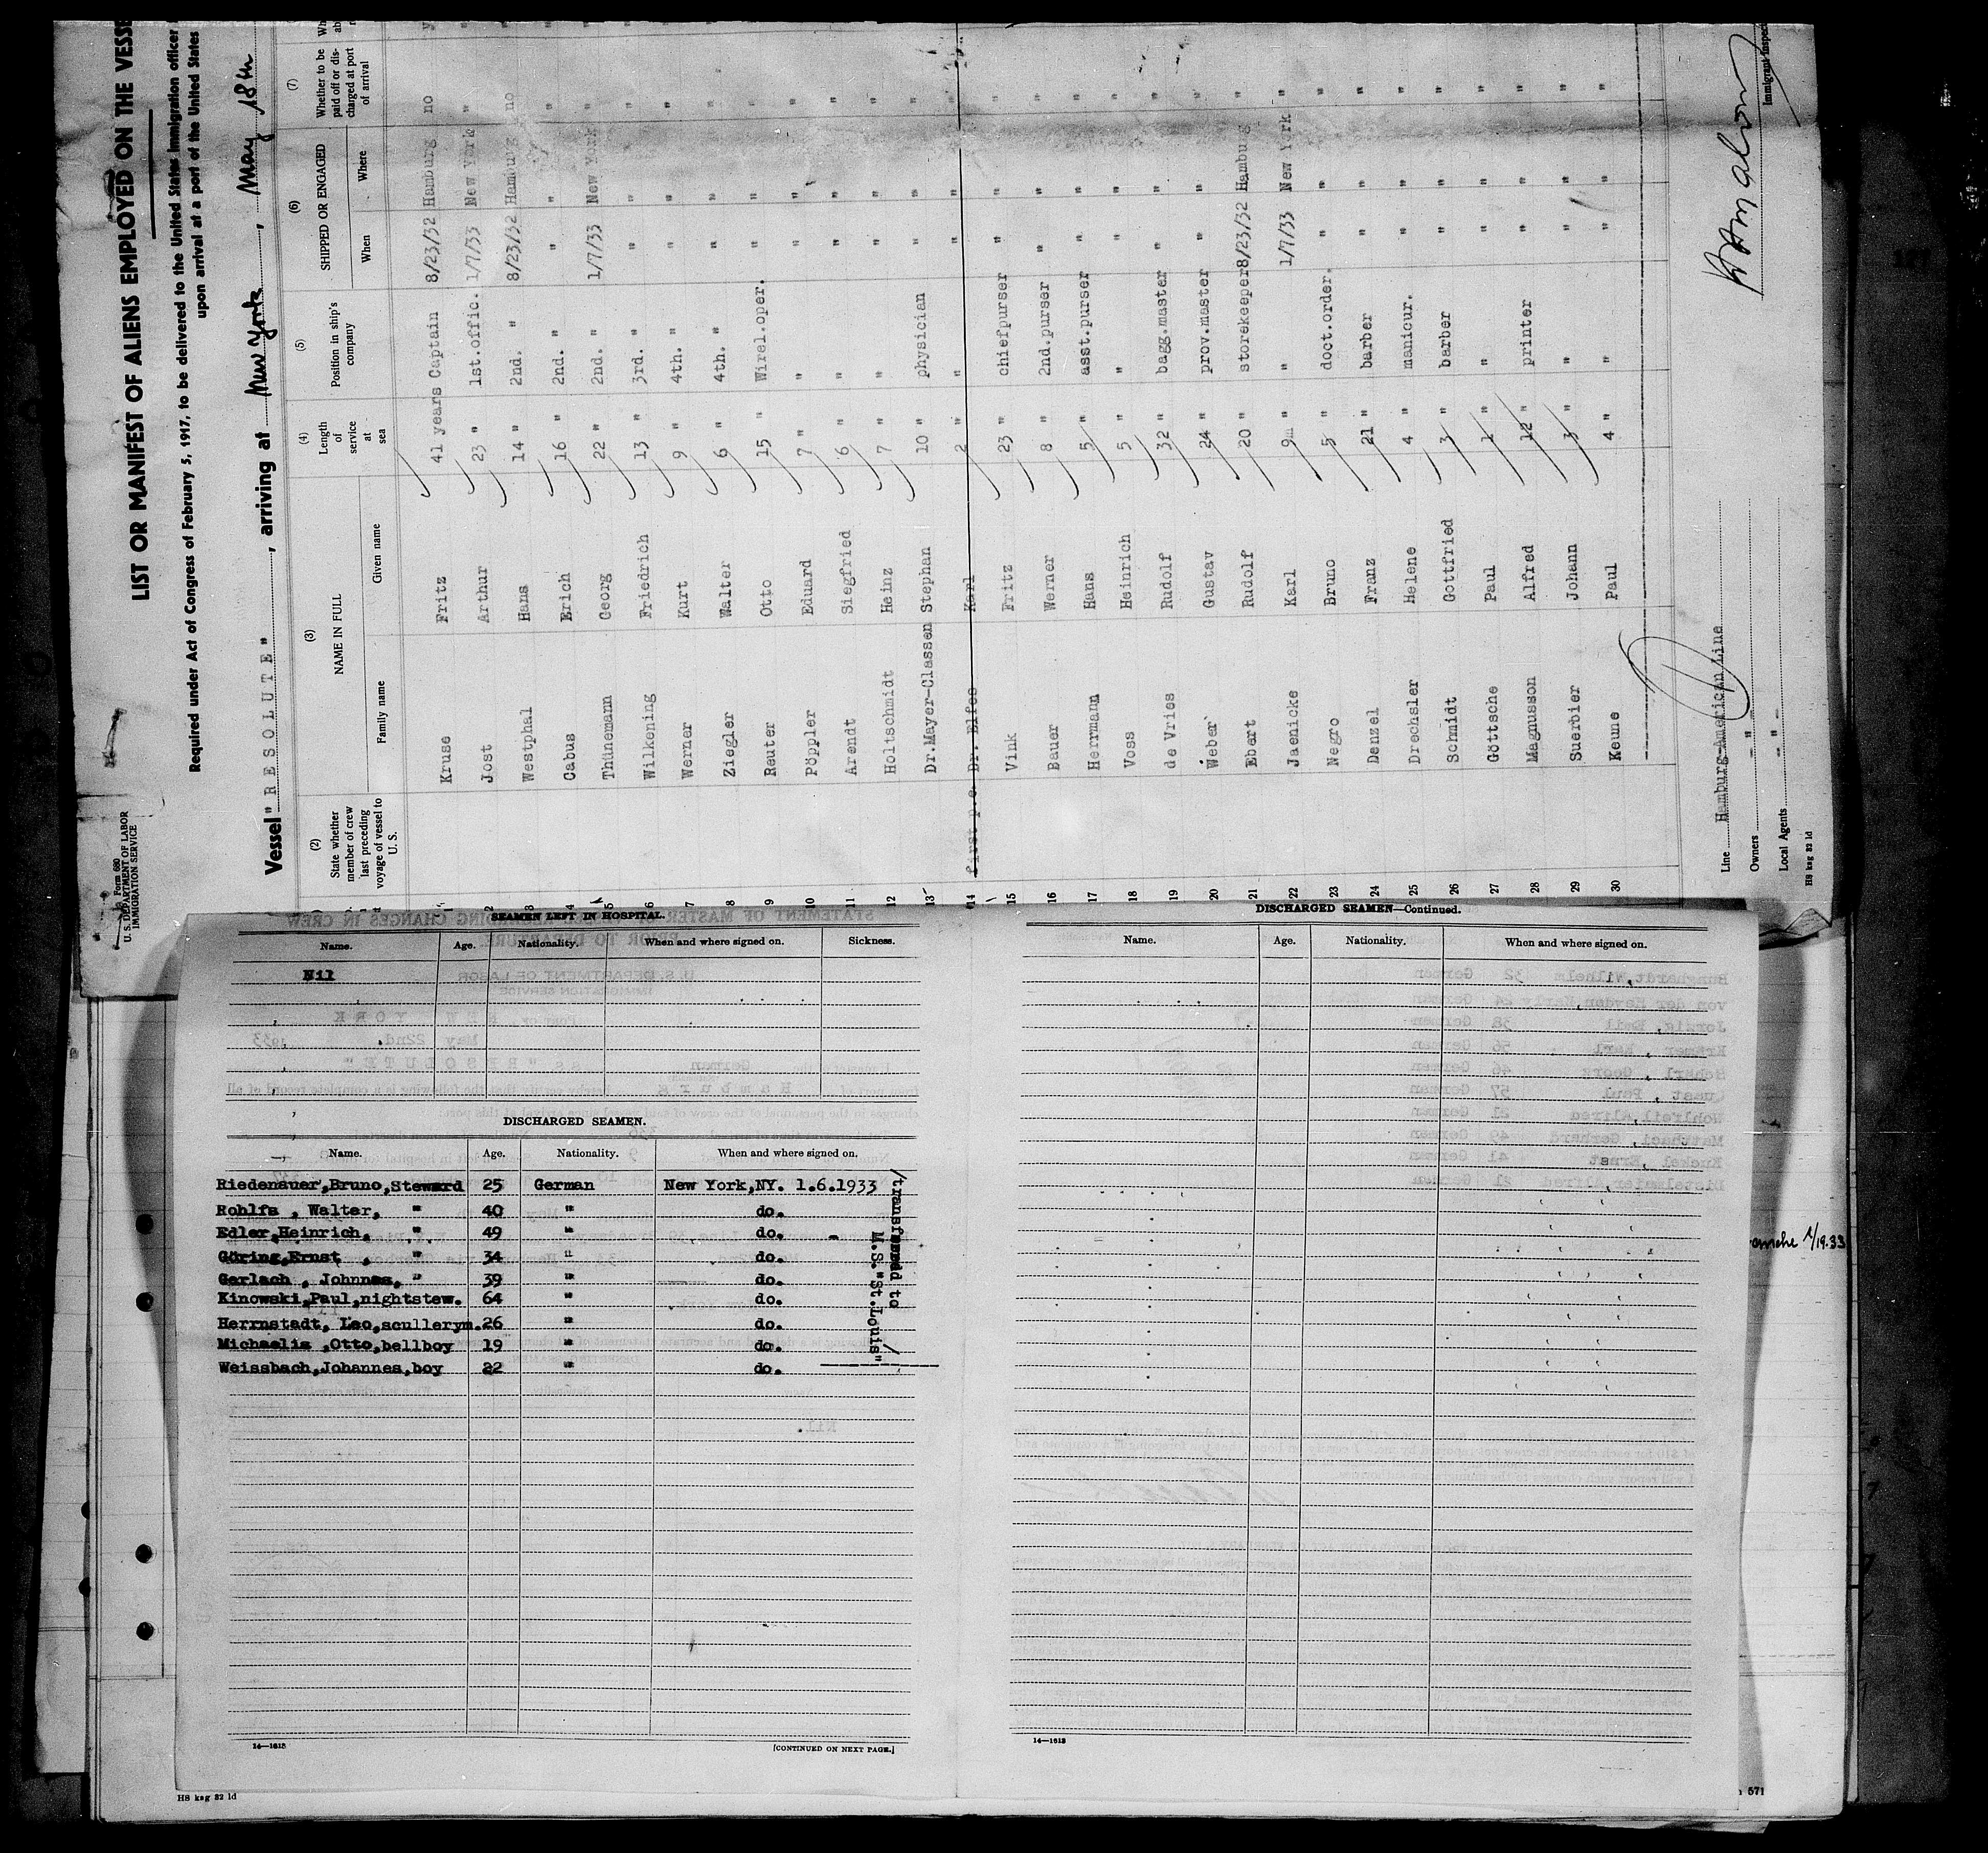 Form 680
U. S. DEPARTMENT OF LABOR
IMMIGRATION SERVICE
LIST OR MANIFEST OF ALIENS EMPLOYED ON THE VESSE
Required under Act of Congress of February 5, 1917, to be delivered to the United States immigration officer
upon arrival at a port of the United States
Vessel "RESOLUTE", arriving at New York, May 18th
(2) State whether member of crew last preceding voyage of vessel to U. S. (3) NAME IN FULL Family name Given name (4) Length of service at sea (5) Position in ship's company (6) SHIPPED OR ENGAGED When Where (7) Whether to be paid off or discharged at port of arrival
1 Kruse Fritz 41 years Captain 8/23/32 Hamburg no
2 Jost Arthur 23 " 1st.offic. 1/7/33 New York "
3 Westphal Hans 14 " 2nd. " 8/23/32 Hamburg no
4 Cabus Erich 16 " 2nd. " " " "
5 Thünemann Georg 22 " 2nd. " 1/7/33 New York "
6 Wilkening Friedrich 13 " 3rd. " " " "
7 Werner Kurt 9 " 4th. " " " "
8 Ziegler Walter 6 " 4th. " " " "
9 Reuter Otto 15 " Wirel.oper. " " "
10 Pöppler Eduard 7 " " " " "
11 Arendt Siegfried 6 " " " " "
12 Holtschmidt Heinz 7 " " " " "
13 Dr.Mayer-Classen Stephan 10 " physician " " "
14 first p.e. Dr. Elfes Karl 2 " " " " "
15 Vink Fritz 23 " chiefpurser " " "
16 Bauer Werner 8 " 2nd.purser " " "
17 Herrmann Hans 5 " asst.purser " " "
18 Voss Heinrich 5 " " " " "
19 de Vries Rudolf 32 " bagg.master " " "
20 Weber Gustav 24 " prov.master " " "
21 Ebert Rudolf 20 " storekeeper 8/23/32 Hamburg "
22 Jaenicke Karl 9m " " 1/7/33 New York "
23 Negro Bruno 5 " doct.order. " " "
24 Denzel Franz 21 " barber " " "
25 Drechsler Helene 4 " manicur. " " "
26 Schmidt Gottfried 3 " barber " " "
27 Göttsche Paul 1 " " " " "
28 Magnusson Alfred 12 " printer " " "
29 Suerbier Johann 3 " " " " "
30 Keune Paul 4 " " " " "
Line Hamburg-American Line
Owners - " -
Local Agents - " -
Immigrant Inspec
HS ksg 32 1d
SEAMEN LEFT IN HOSPITAL.
Name. Age. Nationality. When and where signed on. Sickness.
Nil
DISCHARGED SEAMEN.
Name. Age. Nationality. When and where signed on.
Riedenauer,Bruno,Steward 25 German New York,NY. 1.6.1933
Rohlfs , Walter, " 40 " do.
Edler,Heinrich, " 49 " do.
Göring,Ernst , " 34 " do.
Gerlach , Johnnes, " 39 " do.
Kinowski,Paul,nightstew. 64 " do.
Herrnstadt, Leo,scullerym. 26 " do.
Michaelis ,Otto,bellboy 19 " do.
Weissbach,Johannes,boy 22 " do.
/transferred to
M.S."St.Louis" /
14—1613
[CONTINUED ON NEXT PAGE.]
DISCHARGED SEAMEN—Continued.
Name. Age. Nationality. When and where signed on.
14—1613
HS ksg 32 1d
571